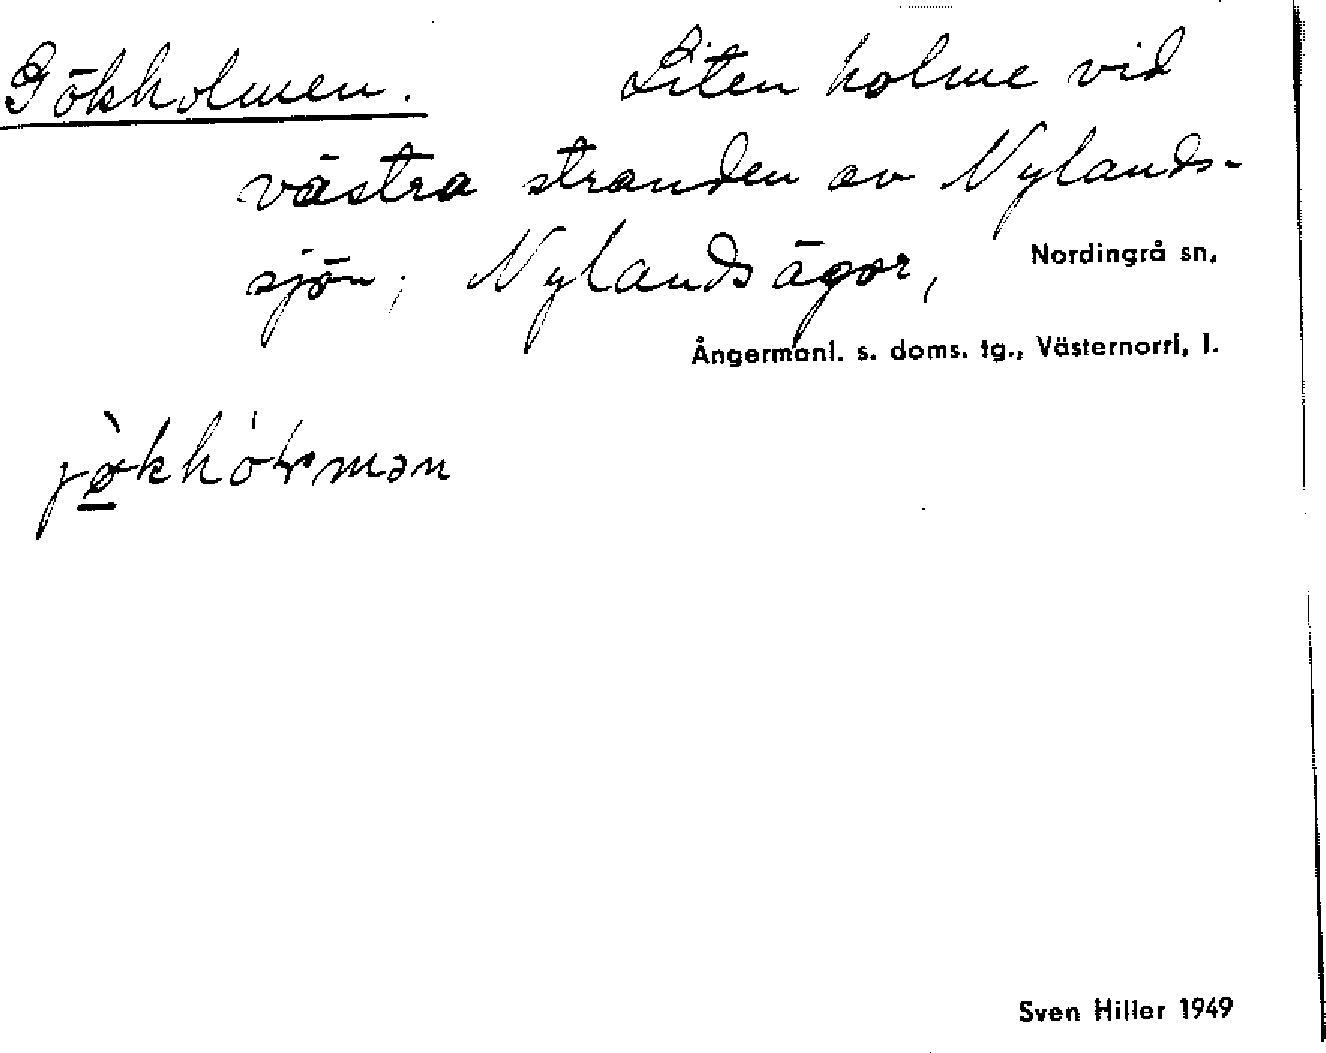 Gökholmen. Liten holme vid
västra stranden av Nylands-
sjön; Nylands ägor, Nordingrå sn,
Ångermanl. s. doms. tg., Västernorrl, l.
Sven Hiller 1949